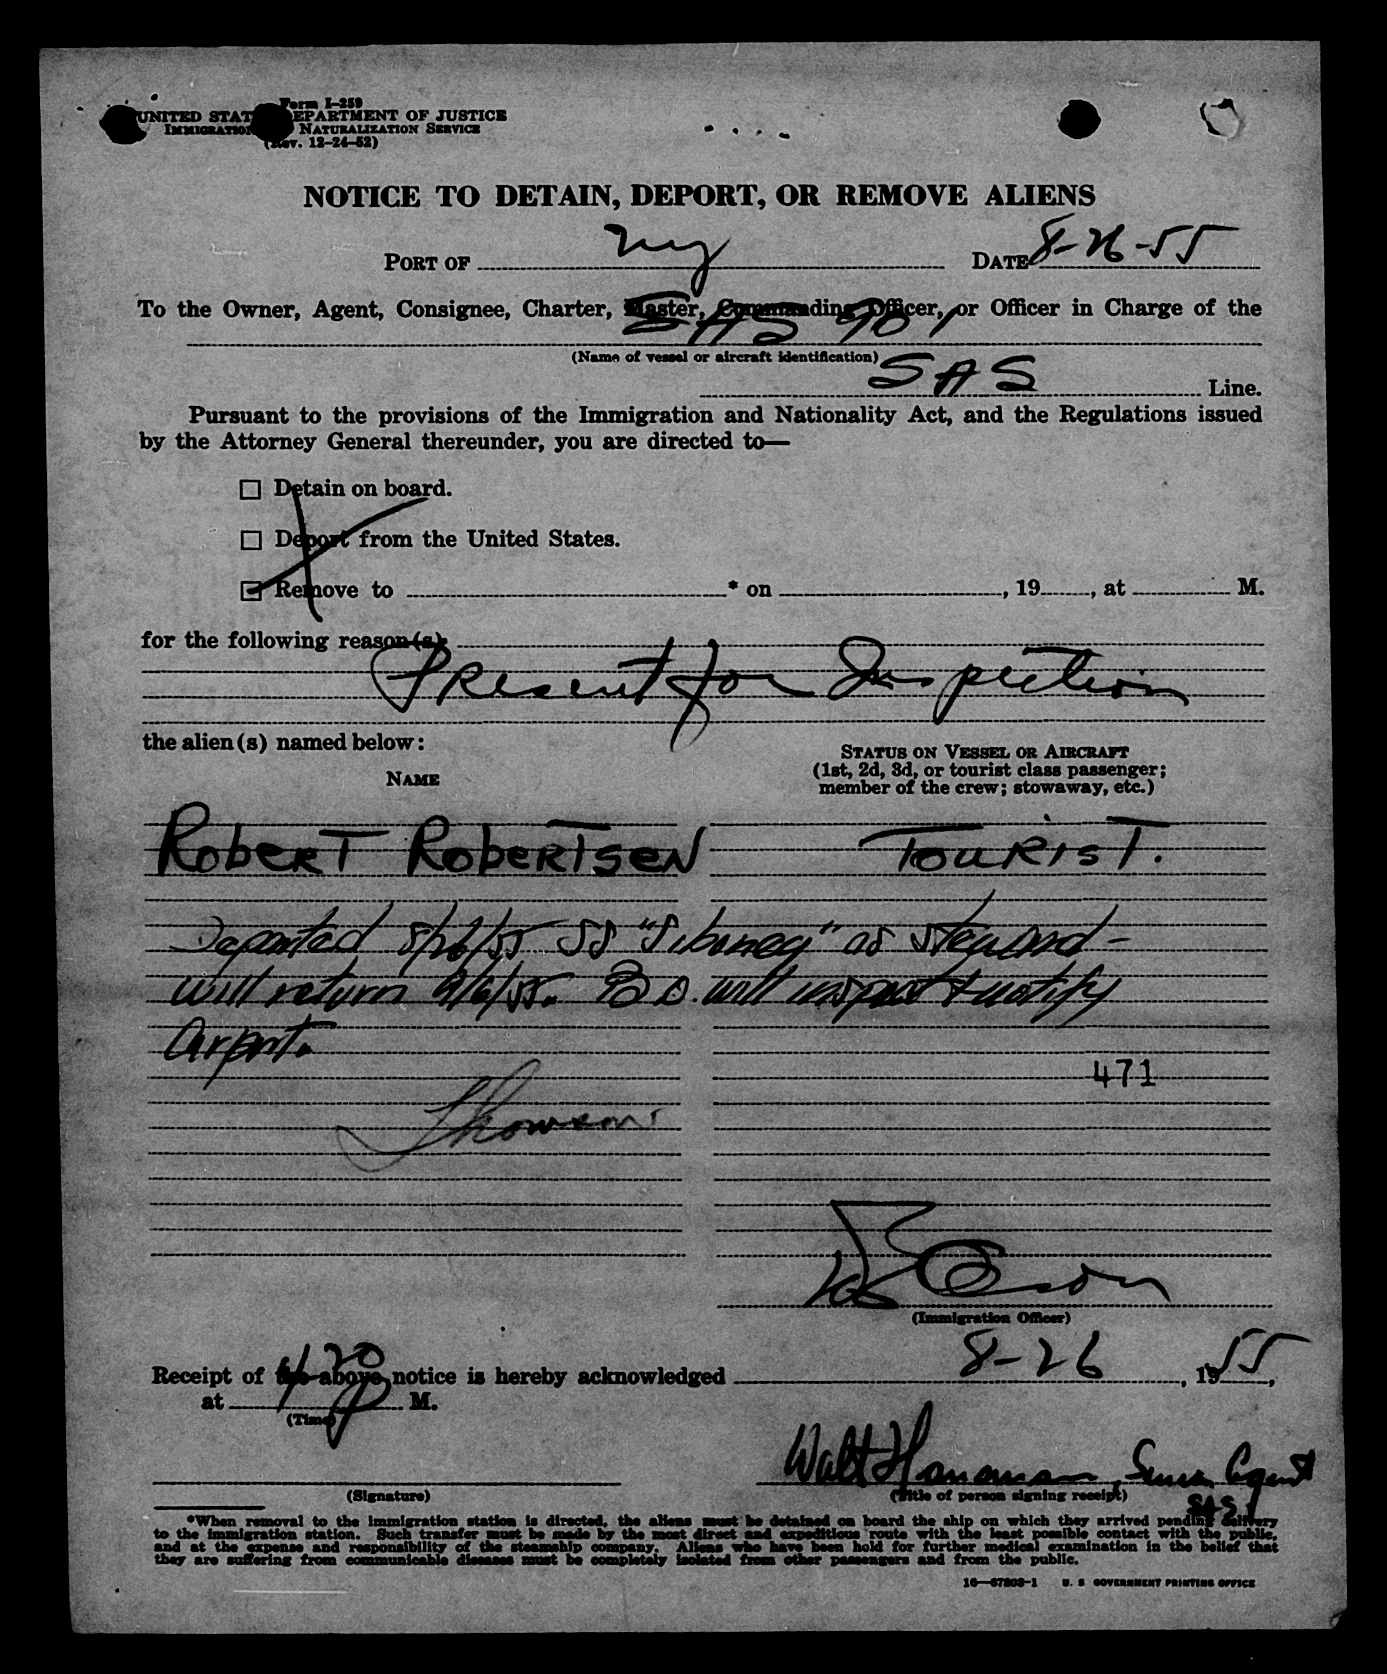 Form I-259
UNITED STAT EPARTMENT OF JUSTICE
IMMIGRATION NATURALIZATION SERVICE
(Rev. 12-24-52)
NOTICE TO DETAIN, DEPORT, OR REMOVE ALIENS
PORT OF NY DATE 8-26-55
To the Owner, Agent, Consignee, Charter, Master, Commanding Officer, or Officer in Charge of the
SAS 901
(Name of vessel or aircraft identification)
SAS Line.
Pursuant to the provisions of the Immigration and Nationality Act, and the Regulations issued
by the Attorney General thereunder, you are directed to—
☐ Detain on board.
☐ Deport from the United States.
☐ Remove to * on , 19 , at M.
for the following reason(s):
Present for Inspection
the alien(s) named below:
STATUS ON VESSEL OR AIRCRAFT
(1st, 2d, 3d, or tourist class passenger;
member of the crew; stowaway, etc.)
NAME
ROBERT ROBERTSEN TOURIST.
Departed 8/26/55 SS "Siboney" as steward -
will return 9/6/55. B.D. will inspect & notify
airport.
471
(Immigration Officer)
Receipt of the above notice is hereby acknowledged 8-26, 1955,
at 4/20 P M.
(Time)
Walt Agent
SAS
(Signature) (Title of person signing receipt)
*When removal to the immigration station is directed, the aliens must be detained on board the ship on which they arrived pending delivery
to the immigration station. Such transfer must be made by the most direct and expeditious route with the least possible contact with the public,
and at the expense and responsibility of the steamship company. Aliens who have been held for further medical examination in the belief that
they are suffering from communicable diseases must be completely isolated from other passengers and from the public.
16—67208-1 U. S GOVERNMENT PRINTING OFFICE